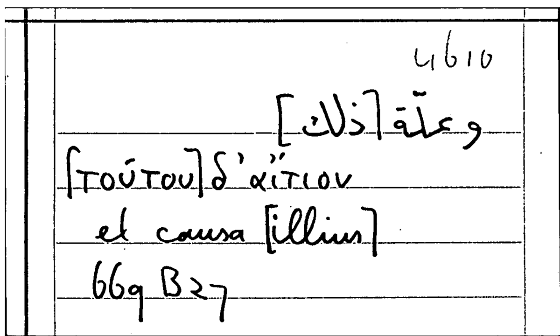 4610
وعلّة [ذلك]
[τούτου] δ' αἴτιον
et causa [illius]
669 B27